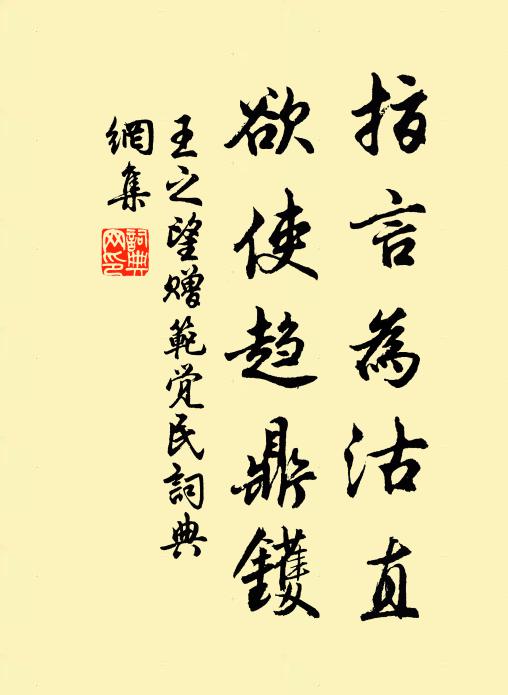 指言為沽直
欲使趋鼎鑊
王之望赠範党民詞典
網集
詞典网印